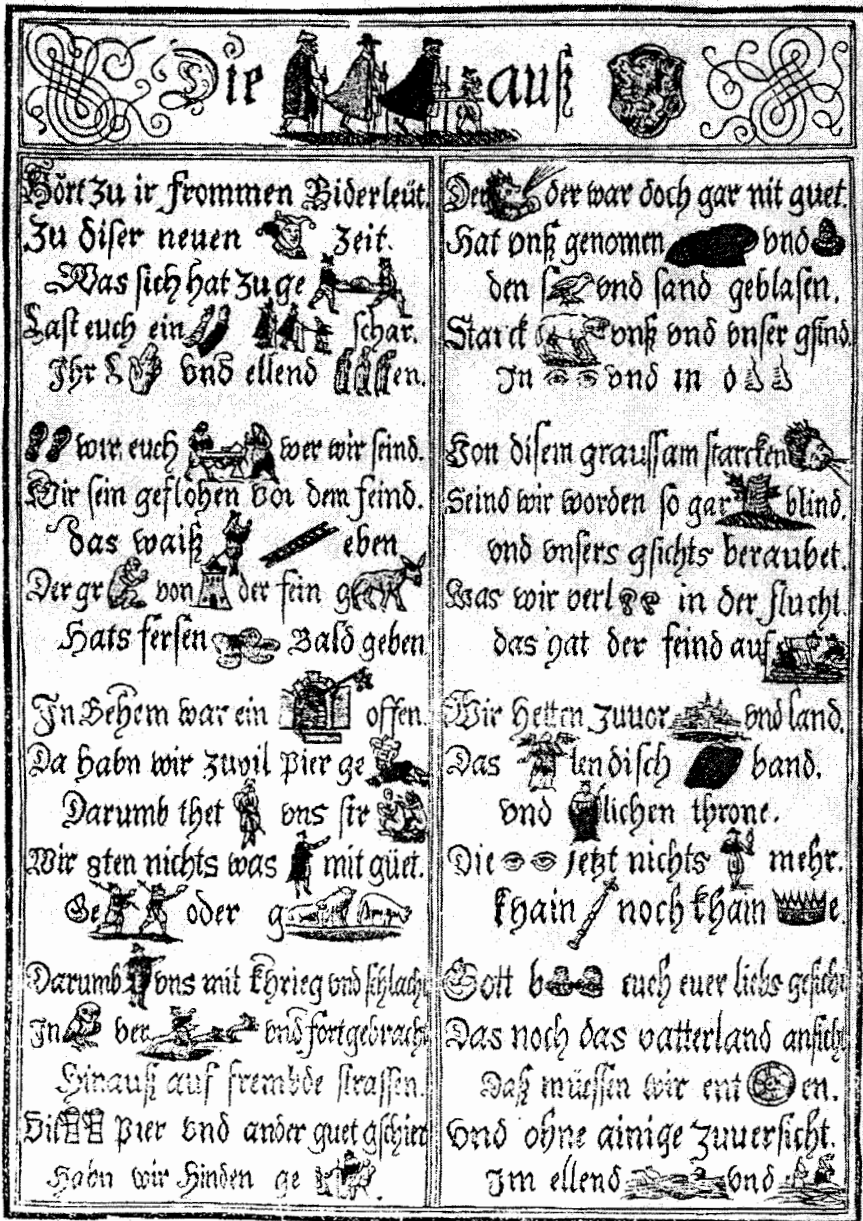 Die auß
Hört zu ir frommen Biderleüt.
Zu diser neuen zeit.
Was sich hat zu ge
Last euch ein schar.
Ihr vnd ellend en.
wir euch wer wir seind.
Wir sein geflohen vor dem feind.
das waiß eben
Der gr von der fein g
Hats fersen Bald geben
In Behem war ein offen.
Da habn wir zuvil pier ge
Darumb thet vns str
Wir 8ten nichts was mit güet.
Ge oder g
Darumb vns mit khrieg vnd schlacht
In ver vnd fortgebracht
Hinauß auf frembde strassen.
Pier vnd ander guet gschier
Habn wir hinden ge
Der der war doch gar nit guet.
Hat vnß genomen vnd
den s vnd sand geblasen.
Starck vnß vnd vnser gsind.
In vnd in o
Von disem graussam starcken
Seind wir worden so gar blind.
vnd vnsers gsichts beraubet.
Was wir verl in der flucht.
das hat der feind auf
Wir hetten zuuor vnd land.
Das lendisch band.
vnd lichen throne.
Die jetzt nichts mehr.
khain noch khain e.
Gott b euch euer liebs gesicht
Das noch das vatterland ansicht
Daß müessen wir ent en.
Vnd ohne ainige zuuersicht.
Im ellend vnd